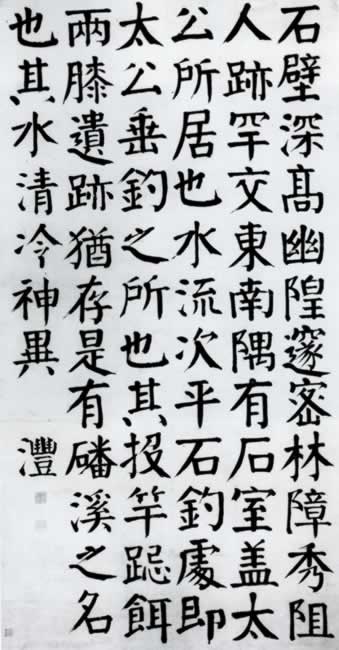 石壁深髙幽隍邃密林障秀阻
人跡罕交東南隅有石室盖太
公所居也水流次平石釣處即
太公垂釣之所也其投竿跽餌
兩膝遺跡猶存是有磻溪之名
也其水清冷神異 灃